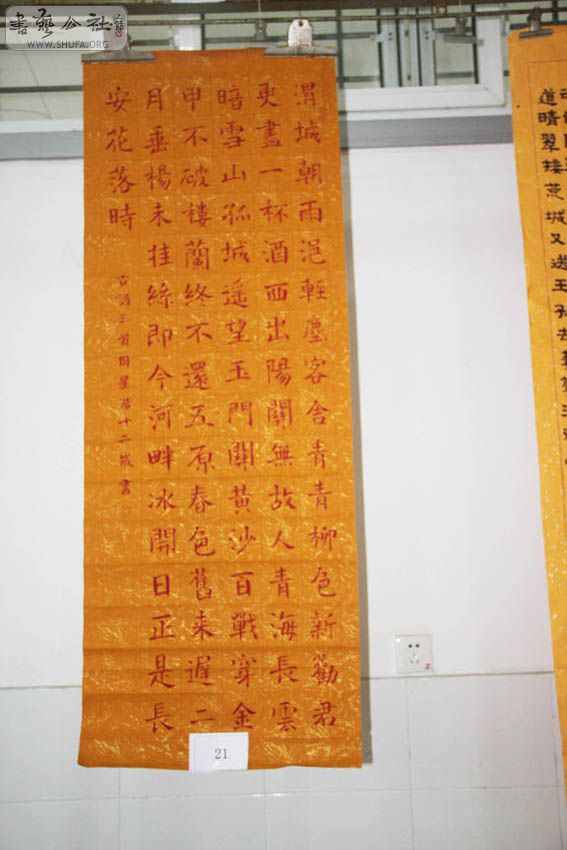 書藝公社
WWW.SHUFA.ORG
渭城朝雨浥輕塵客舍青青柳色新勸君
更盡一杯酒西出陽關無故人青海長雲
暗雪山孤城遙望玉門關黃沙百戰穿金
甲不破樓蘭終不還五原春色舊來遲二
月垂楊未挂絲即今河畔冰開日正是長
安花落時
古詩三首周星浩十二歲書
21
道晴翠接荒城又送王孫去